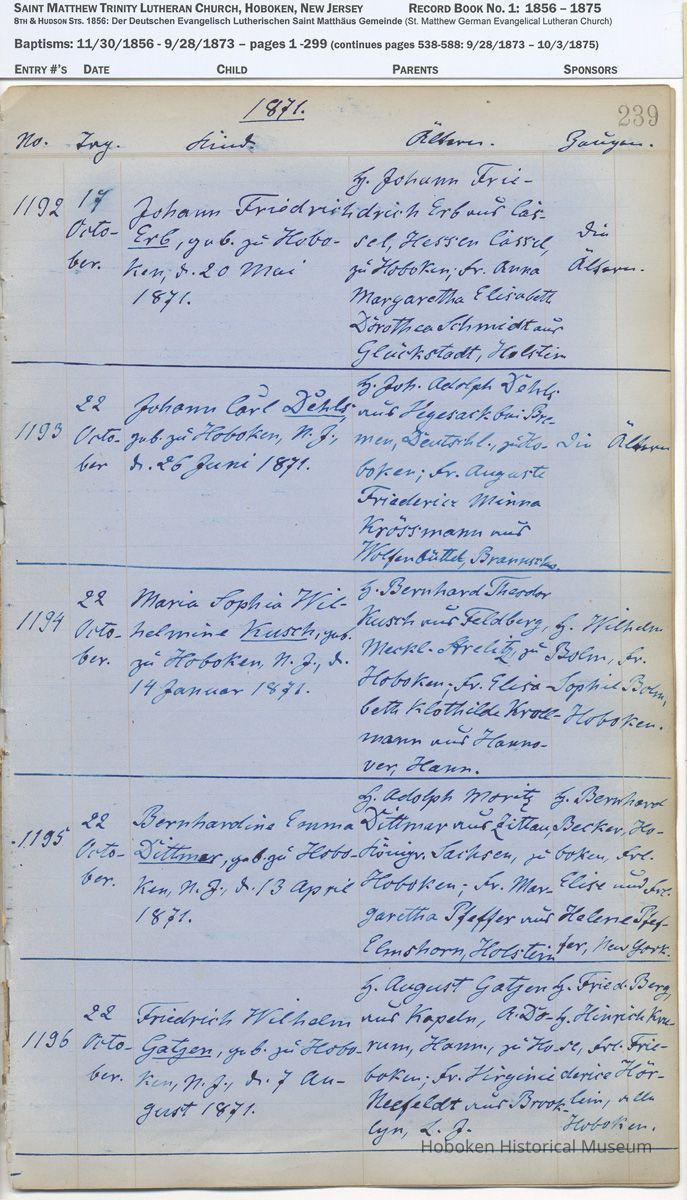 SAINT MATTHEW TRINITY LUTHERAN CHURCH, HOBOKEN, NEW JERSEY RECORD BOOK NO. 1: 1856 – 1875
8TH & HUDSON STS. 1856: Der Deutschen Evangelisch Lutherischen Saint Matthäus Gemeinde (St. Matthew German Evangelical Lutheran Church)
Baptisms: 11/30/1856 - 9/28/1873 – pages 1 -299 (continues pages 538-588: 9/28/1873 – 10/3/1875)
ENTRY #'S DATE CHILD PARENTS SPONSORS
1871.
239
No. Tag. Kind. Ältern. Zeugen.
1192
17
Octo-
ber.
Johann Friedrich
Erb, geb. zu Hobo-
ken, d. 20 Mai
1871.
H. Johann Frie-
drich Erb aus Cas-
sel, Hessen Cassel,
zu Hoboken; Fr. Anna
Margaretha Elisabeth
Dorothea Schmidt aus
Glückstadt, Holstein
Die
Ältern.
1193
22
Octo-
ber
Johann Carl Dehls,
geb. zu Hoboken, N. J.,
d. 26 Juni 1871.
H. Joh. Adolph Dehls
aus Vegesack bei Bre-
men, Deutschl., zu Ho-
boken; Fr. Auguste
Friederice Minna
Krössmann aus
Wolfenbüttel, Braunschw.
Die Ältern
1194
22
Octo-
ber.
Maria Sophia Wil-
helmine Kusch, geb.
zu Hoboken, N. J., d.
14 Januar 1871.
H. Bernhard Theodor
Kusch aus Feldberg,
Meckl.-Strelitz, zu
Hoboken; Fr. Elisa-
beth Klothilde Kroll-
mann aus Hanno-
ver, Hann.
H. Wilhelm
Bolm, Fr.
Sophie Bolm,
Hoboken.
1195
22
Octo-
ber.
Bernhardine Emma
Dittmar, geb. zu Hobo-
ken, N. J., d. 13 April
1871.
H. Adolph Moritz
Dittmar aus Zittau
Königr. Sachsen, zu
Hoboken; Fr. Mar-
garetha Pfeffer aus
Elmshorn, Holstein
H. Bernhard
Becker, Ho-
boken, Frl.
Elise und Frl.
Helene Pfef-
fer, New York.
1196
22
Octo-
ber.
Friedrich Wilhelm
Gatzen, geb. zu Hobo-
ken, N. J., d. 7 Au-
gust 1871.
H. August Gatzen
aus Kapeln, A. Do-
rum, Hann., zu Ho-
boken; Fr. Virginie
Neefeldt aus Brook-
lyn, L. J.
H. Fried. Berg,
H. Hinrich Kru-
se, Frl. Frie-
derice Hör-
lein, alle
Hoboken.
Hoboken Historical Museum